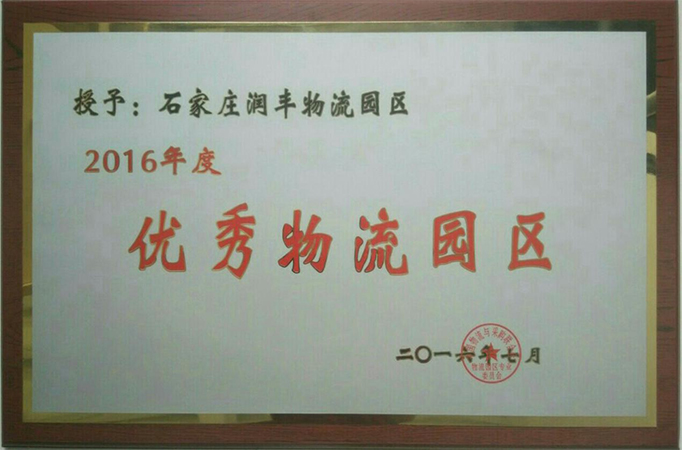 授予：石家庄润丰物流园区
2016年度
优秀物流园区
二〇一六年七月
物流园区专业
委员会